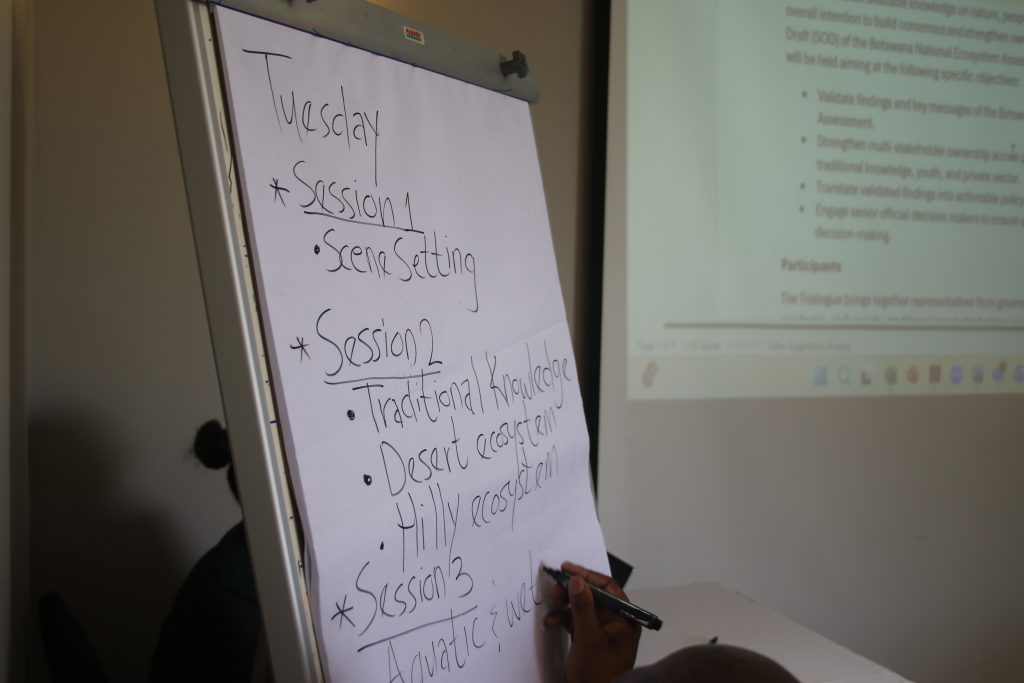 Tuesday
* Session 1
• Scene Setting
* Session 2
• Traditional Knowledge
• Desert ecosystem
• Hilly ecosystem
* Session 3
Aquatic & wet
knowledge on nature, peop
overall intention to build consensus and strengthen ow
Draft (SOD) of the Botswana National Ecosystem Asse
will be held aiming at the following specific objectives:
• Validate findings and key messages of the Botsw
Assessment.
• Strengthen multi-stakeholder ownership across
traditional knowledge, youth, and private sector.
• Translate validated findings into actionable policy
• Engage senior official decision makers to ensure
decision-making.
Participants
The Trialogue brings together representatives from gover